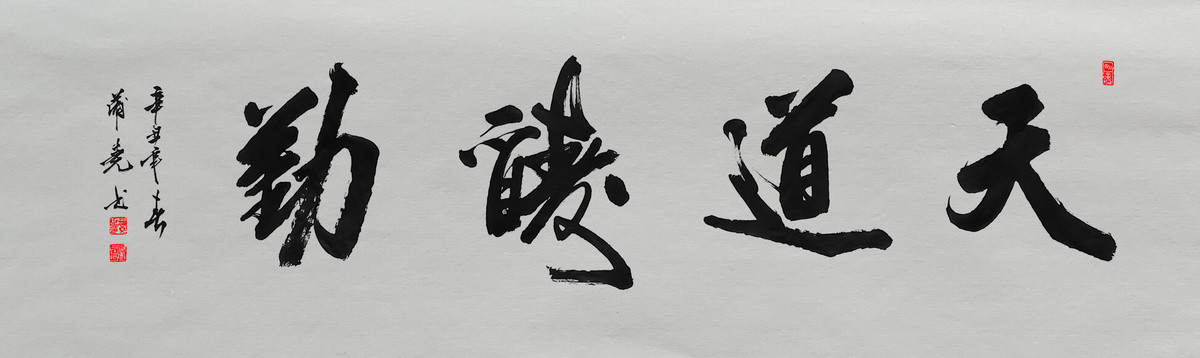 天道酬勤
辛丑年春
蒲尧书